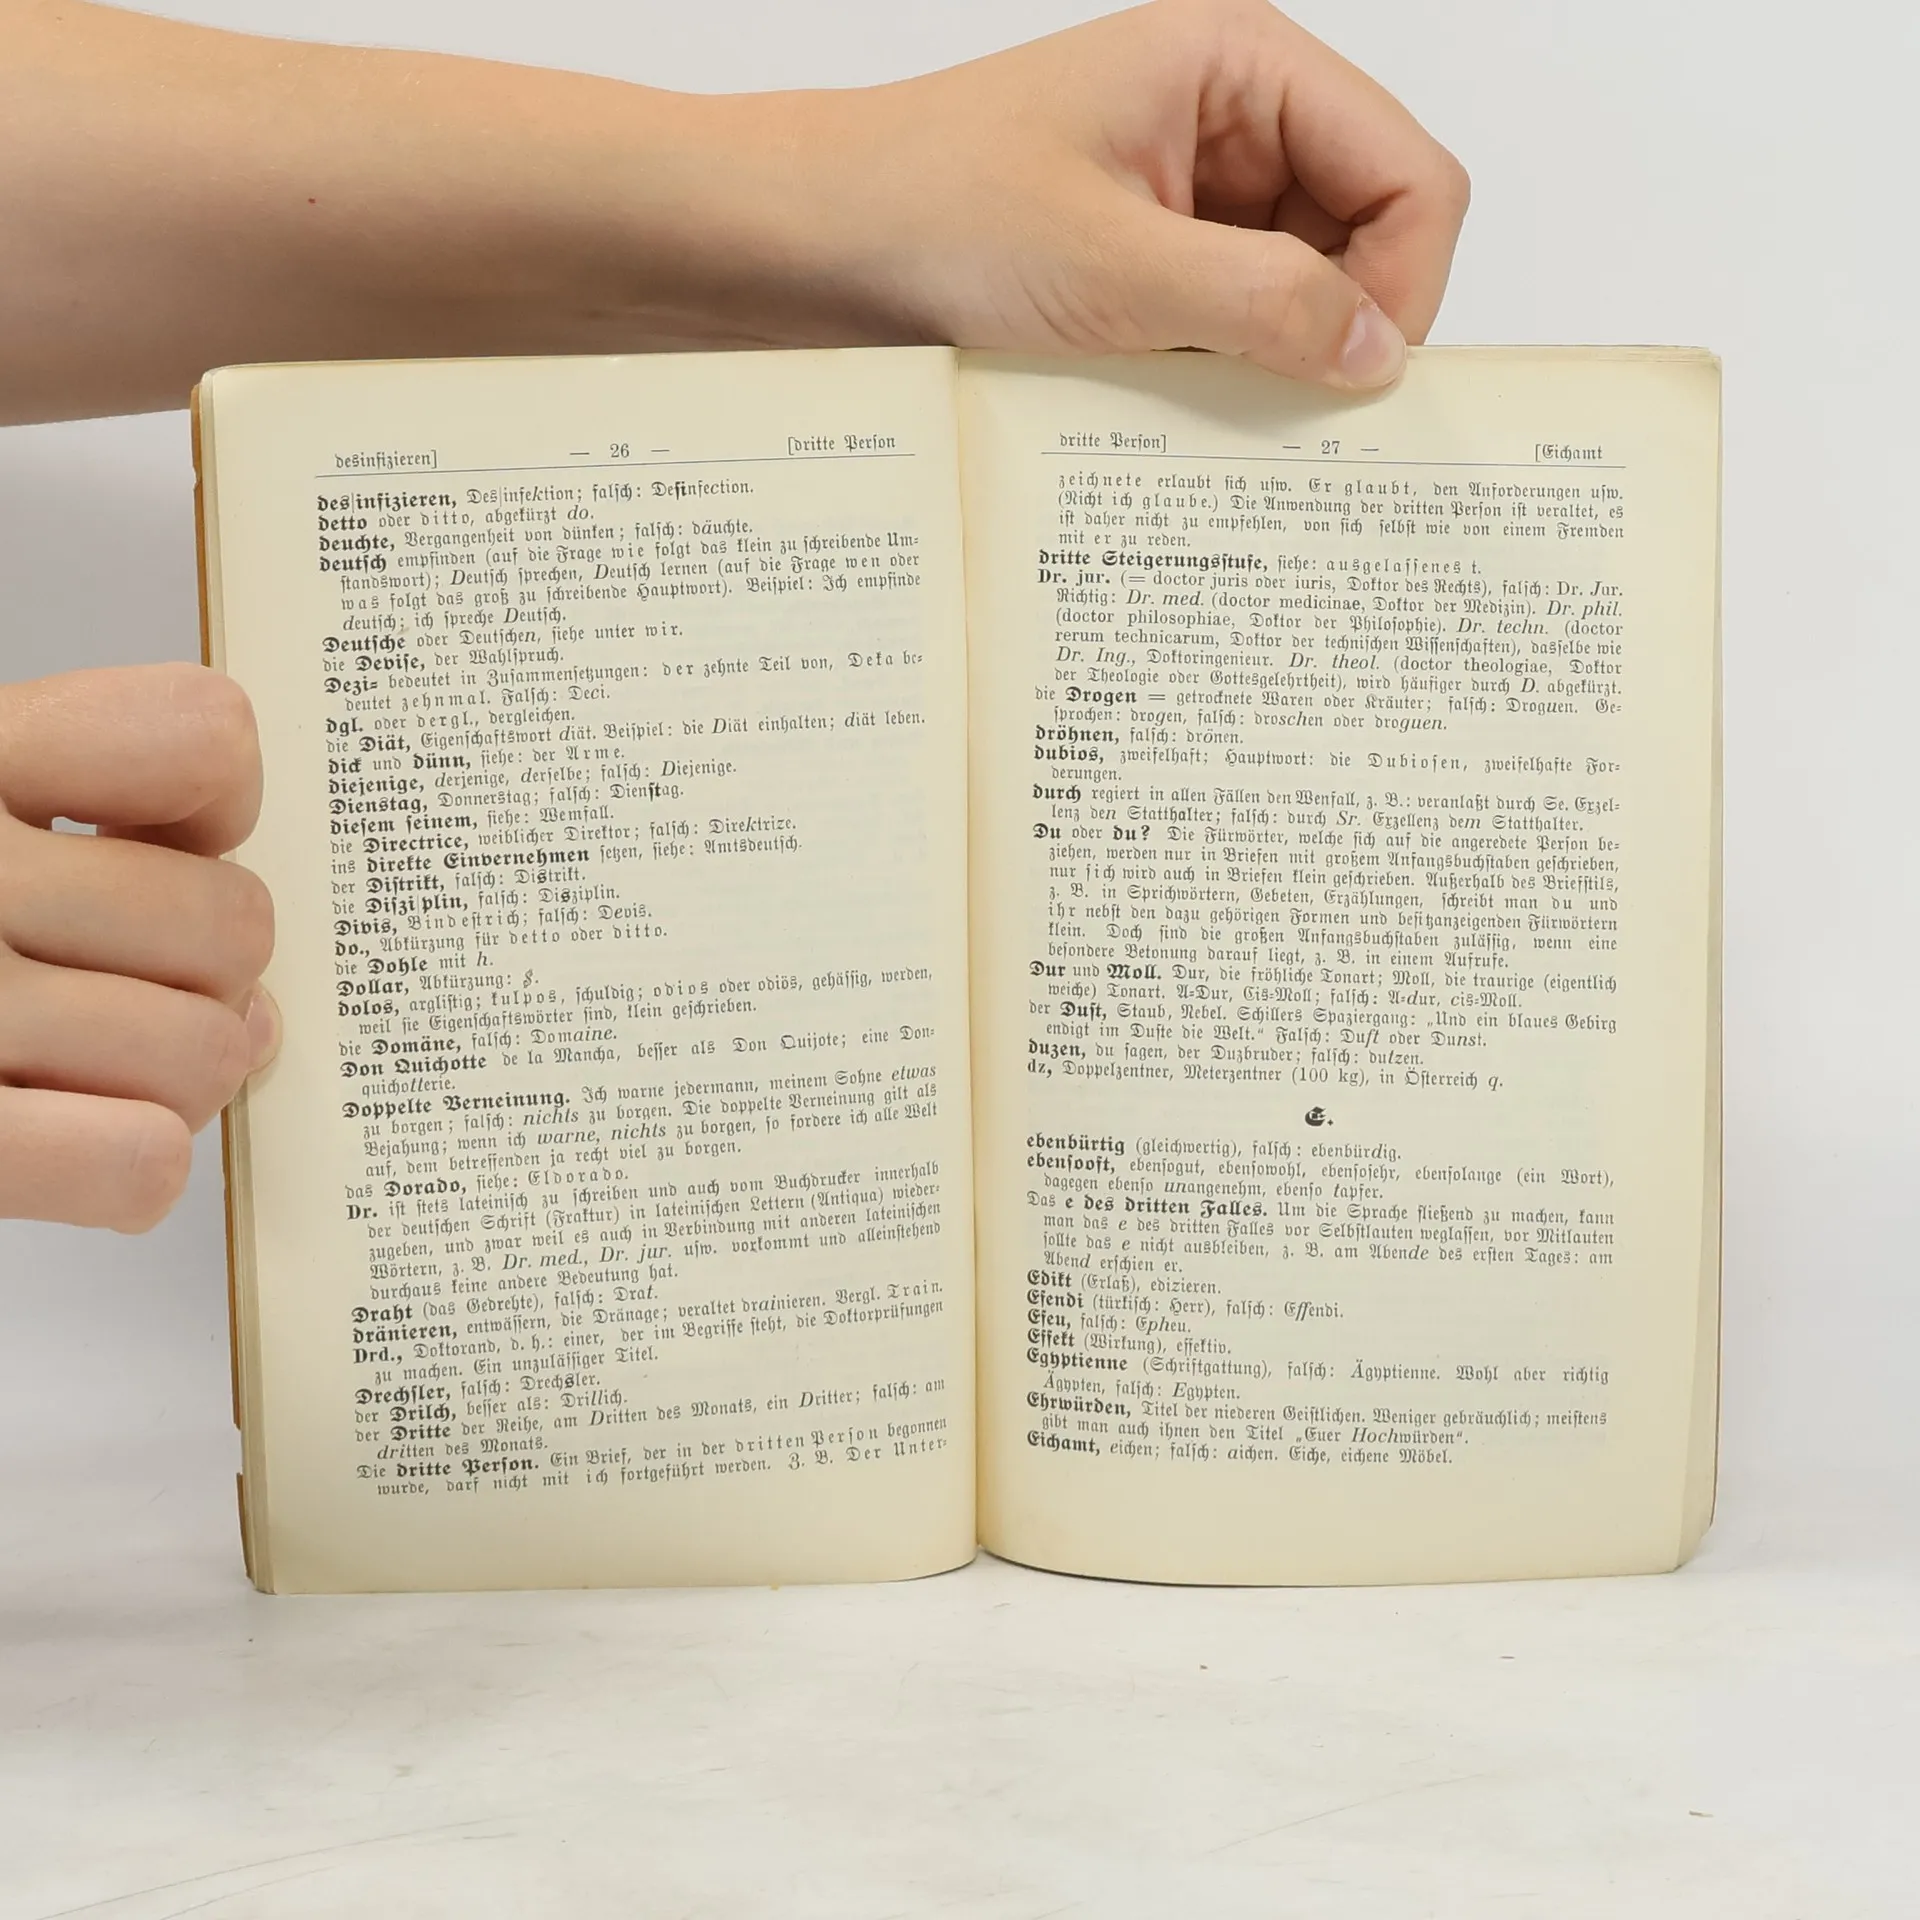 desinfizieren]
— 26 —
[dritte Perſon
des|infizieren, Des|infektion; falſch: Deſinfection.
detto oder ditto, abgekürzt do.
deuchte, Vergangenheit von dünken; falſch: däuchte.
deutſch empfinden (auf die Frage wie folgt das klein zu ſchreibende Um⸗
ſtandswort); Deutſch ſprechen, Deutſch lernen (auf die Frage wen oder
was folgt das groß zu ſchreibende Hauptwort). Beiſpiel: Ich empfinde
deutſch; ich ſpreche Deutſch.
Deutſche oder Deutſchen, ſiehe unter wir.
die Deviſe, der Wahlſpruch.
Dezi⸗ bedeutet in Zuſammenſetzungen: der zehnte Teil von, Deka be⸗
deutet zehnmal. Falſch: Deci.
dgl. oder dergl., dergleichen.
die Diät, Eigenſchaftswort diät. Beiſpiel: die Diät einhalten; diät leben.
dick und dünn, ſiehe: der Arme.
diejenige, derjenige, derſelbe; falſch: Diejenige.
Dienstag, Donnerstag; falſch: Dienſtag.
dieſem ſeinem, ſiehe: Wemfall.
die Directrice, weiblicher Direktor; falſch: Direktrize.
ins direkte Einvernehmen ſetzen, ſiehe: Amtsdeutſch.
der Diſtrikt, falſch: Distrikt.
die Diſzi|plin, falſch: Disziplin.
Divis, Bindeſtrich; falſch: Devis.
do., Abkürzung für detto oder ditto.
die Dohle mit h.
Dollar, Abkürzung: $.
dolos, argliſtig; kulpos, ſchuldig; odios oder odiös, gehäſſig, werden,
weil ſie Eigenſchaftswörter ſind, klein geſchrieben.
die Domäne, falſch: Domaine.
Don Quichotte de la Mancha, beſſer als Don Quijote; eine Don⸗
quichotterie.
Doppelte Verneinung. Ich warne jedermann, meinem Sohne etwas
zu borgen; falſch: nichts zu borgen. Die doppelte Verneinung gilt als
Bejahung; wenn ich warne, nichts zu borgen, ſo fordere ich alle Welt
auf, dem betreffenden ja recht viel zu borgen.
das Dorado, ſiehe: Eldorado.
Dr. iſt ſtets lateiniſch zu ſchreiben und auch vom Buchdrucker innerhalb
der deutſchen Schrift (Fraktur) in lateiniſchen Lettern (Antiqua) wieder⸗
zugeben, und zwar weil es auch in Verbindung mit anderen lateiniſchen
Wörtern, z. B. Dr. med., Dr. jur. uſw. vorkommt und alleinſtehend
durchaus keine andere Bedeutung hat.
Draht (das Gedrehte), falſch: Drat.
dränieren, entwäſſern, die Dränage; veraltet drainieren. Vergl. Train.
Drd., Doktorand, d. h.: einer, der im Begriffe ſteht, die Doktorprüfungen
zu machen. Ein unzuläſſiger Titel.
Drechſler, falſch: Drechsler.
der Drilch, beſſer als: Drillich.
der Dritte der Reihe, am Dritten des Monats, ein Dritter; falſch: am
dritten des Monats.
Die dritte Perſon. Ein Brief, der in der dritten Perſon begonnen
wurde, darf nicht mit ich fortgeführt werden. Z. B. Der Unter⸗
dritte Perſon]
— 27 —
[Eichamt
zeichnete erlaubt ſich uſw. Er glaubt, den Anforderungen uſw.
(Nicht ich glaube.) Die Anwendung der dritten Perſon iſt veraltet, es
iſt daher nicht zu empfehlen, von ſich ſelbſt wie von einem Fremden
mit er zu reden.
dritte Steigerungsſtufe, ſiehe: ausgelaſſenes t.
Dr. jur. (= doctor juris oder iuris, Doktor des Rechts), falſch: Dr. Jur.
Richtig: Dr. med. (doctor medicinae, Doktor der Medizin). Dr. phil.
(doctor philosophiae, Doktor der Philoſophie). Dr. techn. (doctor
rerum technicarum, Doktor der techniſchen Wiſſenſchaften), dasſelbe wie
Dr. Ing., Doktoringenieur. Dr. theol. (doctor theologiae, Doktor
der Theologie oder Gottesgelehrtheit), wird häufiger durch D. abgekürzt.
die Drogen = getrocknete Waren oder Kräuter; falſch: Droguen. Ge⸗
ſprochen: drogen, falſch: droschen oder droguen.
dröhnen, falſch: drönen.
dubios, zweifelhaft; Hauptwort: die Dubioſen, zweifelhafte For⸗
derungen.
durch regiert in allen Fällen den Wenfall, z. B.: veranlaßt durch Se. Exzel⸗
lenz den Statthalter; falſch: durch Sr. Exzellenz dem Statthalter.
Du oder du? Die Fürwörter, welche ſich auf die angeredete Perſon be⸗
ziehen, werden nur in Briefen mit großem Anfangsbuchſtaben geſchrieben,
nur ſich wird auch in Briefen klein geſchrieben. Außerhalb des Briefſtils,
z. B. in Sprichwörtern, Gebeten, Erzählungen, ſchreibt man du und
ihr nebſt den dazu gehörigen Formen und beſitzanzeigenden Fürwörtern
klein. Doch ſind die großen Anfangsbuchſtaben zuläſſig, wenn eine
beſondere Betonung darauf liegt, z. B. in einem Aufrufe.
Dur und Moll. Dur, die fröhliche Tonart; Moll, die traurige (eigentlich
weiche) Tonart. A⸗Dur, Cis⸗Moll; falſch: A⸗dur, cis⸗Moll.
der Duft, Staub, Nebel. Schillers Spaziergang: „Und ein blaues Gebirg
endigt im Dufte die Welt.“ Falſch: Duft oder Dunst.
duzen, du ſagen, der Duzbruder; falſch: dutzen.
dz, Doppelzentner, Meterzentner (100 kg), in Öſterreich q.
E.
ebenbürtig (gleichwertig), falſch: ebenbürdig.
ebenſooft, ebenſogut, ebenſowohl, ebenſoſehr, ebenſolange (ein Wort),
dagegen ebenſo unangenehm, ebenſo tapfer.
Das e des dritten Falles. Um die Sprache fließend zu machen, kann
man das e des dritten Falles vor Selbſtlauten weglaſſen, vor Mitlauten
ſollte das e nicht ausbleiben, z. B. am Abende des erſten Tages: am
Abend erſchien er.
Edikt (Erlaß), edizieren.
Efendi (türkiſch: Herr), falſch: Effendi.
Efeu, falſch: Epheu.
Effekt (Wirkung), effektiv.
Egyptienne (Schriftgattung), falſch: Ägyptienne. Wohl aber richtig
Ägypten, falſch: Egypten.
Ehrwürden, Titel der niederen Geiſtlichen. Weniger gebräuchlich; meiſtens
gibt man auch ihnen den Titel „Euer Hochwürden“.
Eichamt, eichen; falſch: aichen. Eiche, eichene Möbel.